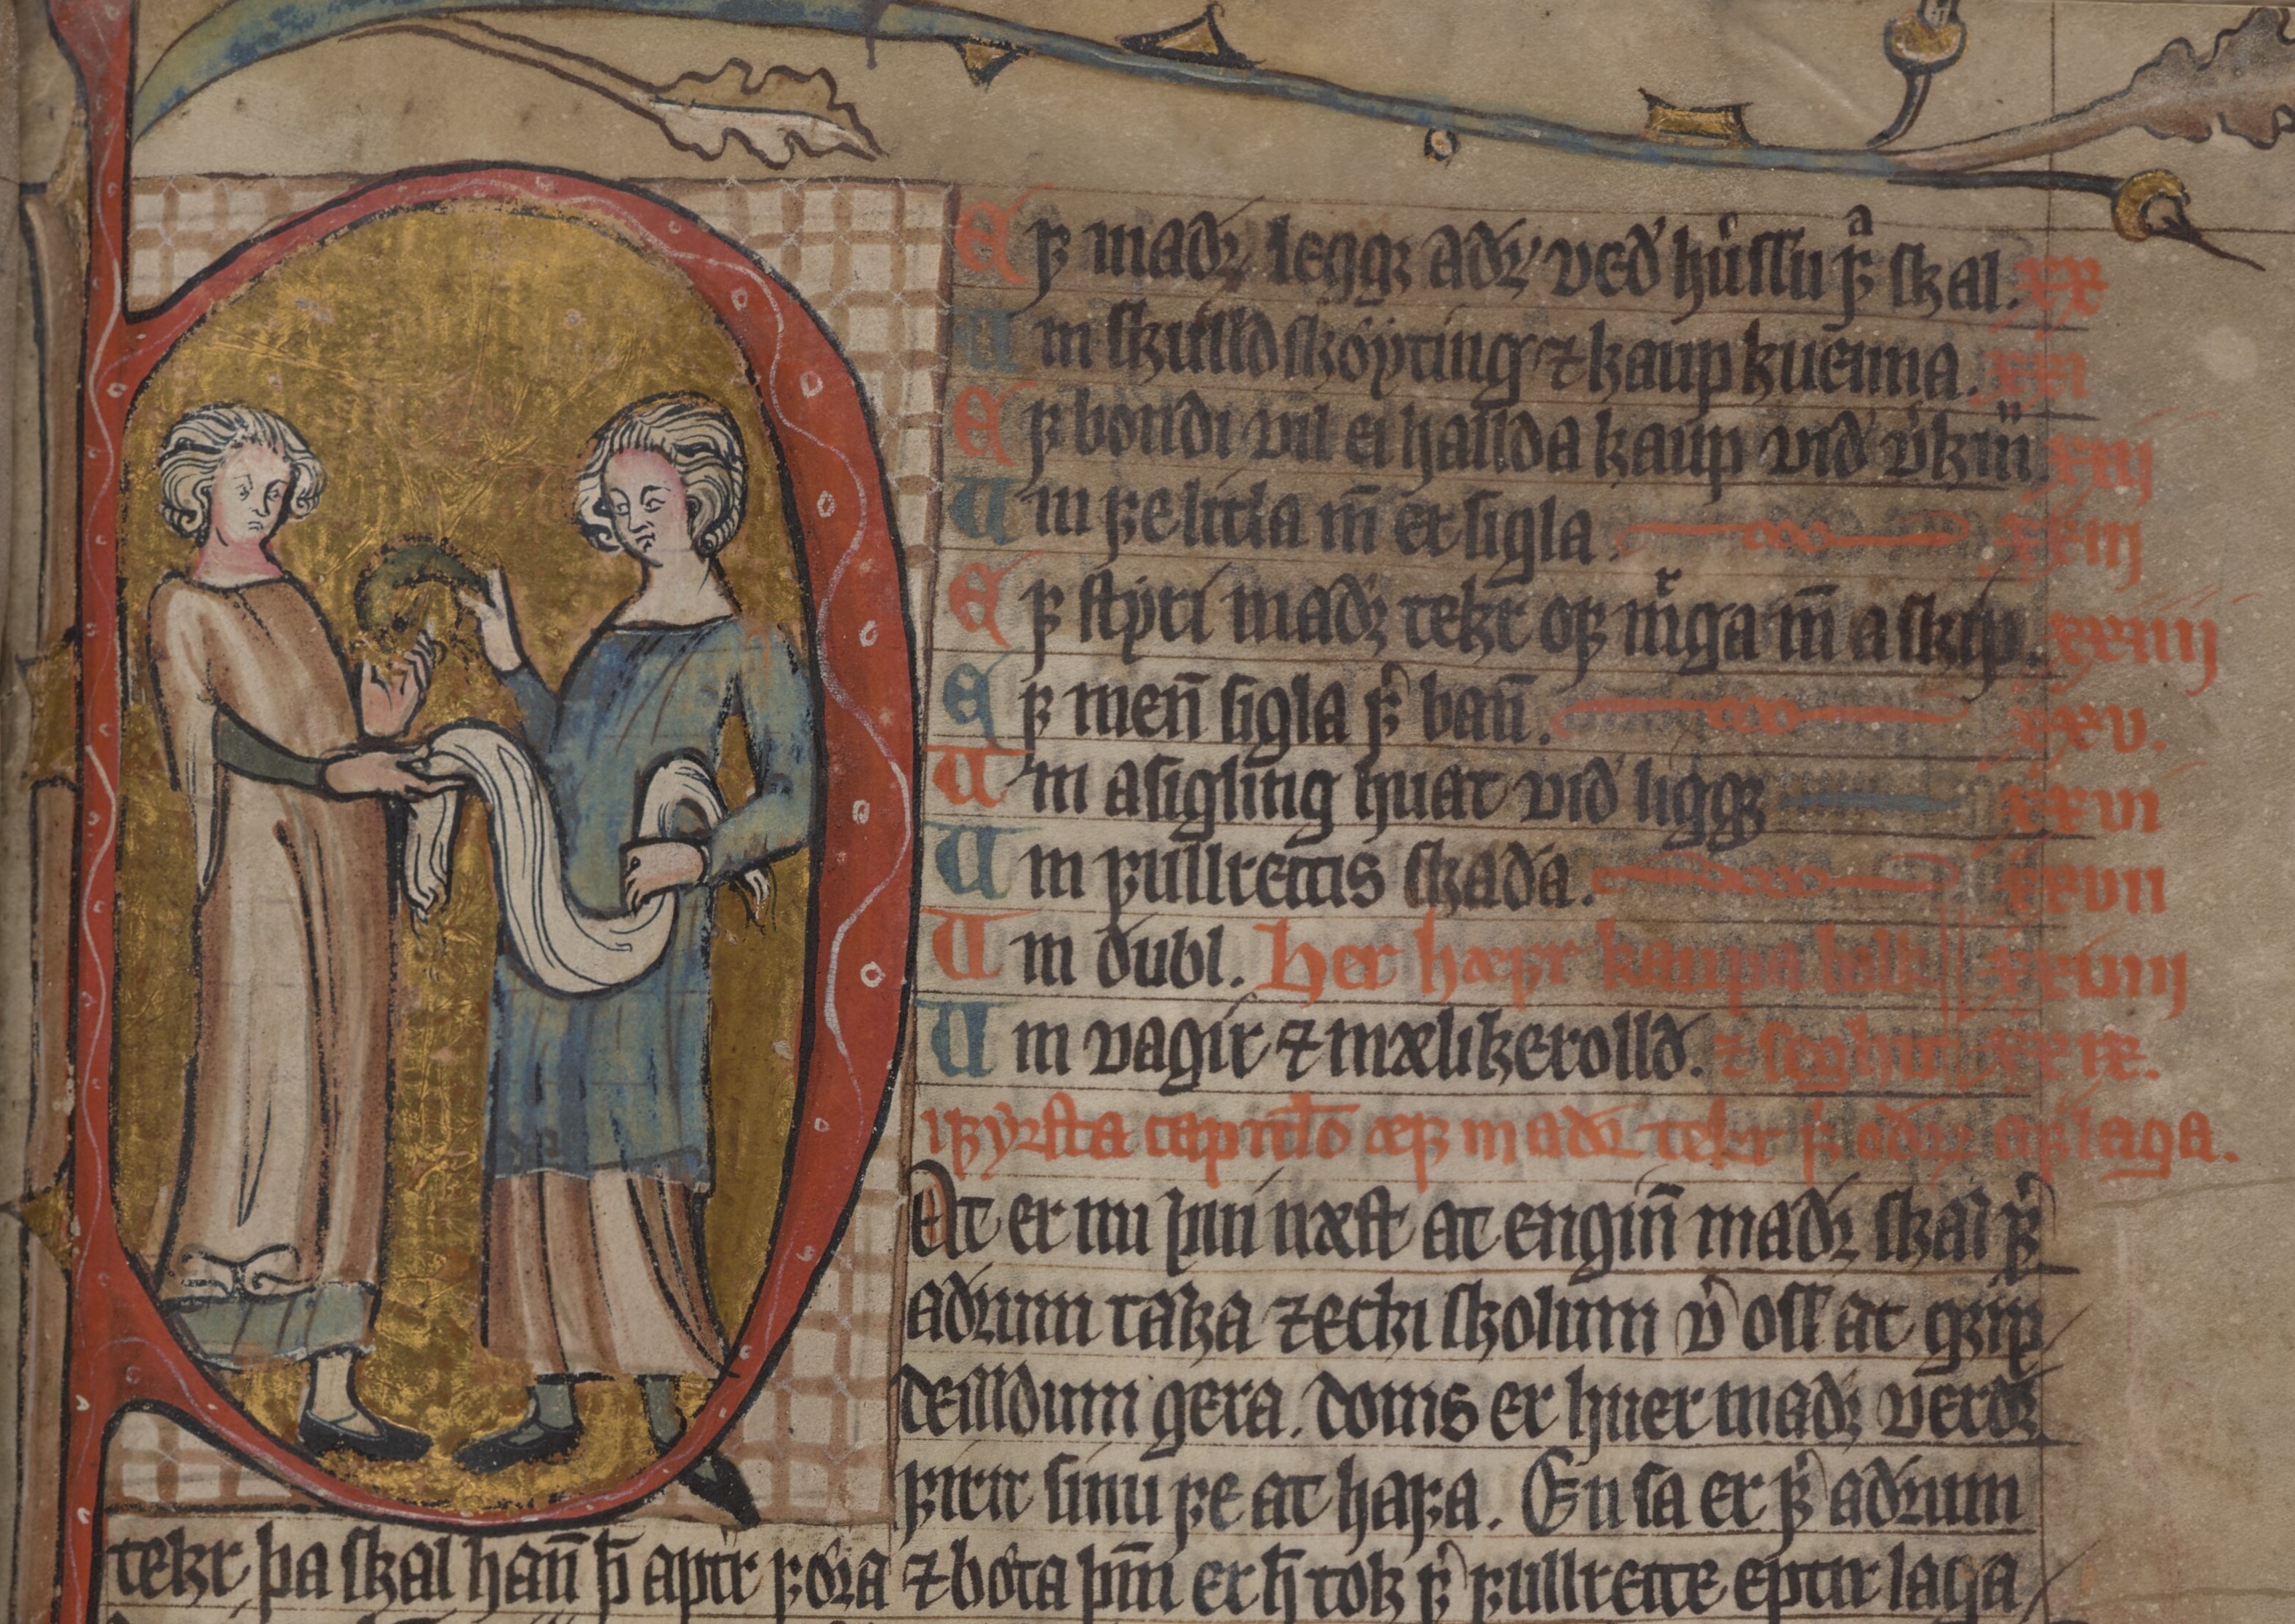 Eꝼ maðꝛ leggꝛ aðꝛ veð hu̾ssu ꝼͣ skal. xx
Um skulldskỏyting ⁊ kaup kuenna. xxi
Eꝼ bondi vil ei hallda kaup við v̾km̄. xxij
Um ꝼe litla m̄ et sigla. xxiij
Eꝼ styri maðꝛ tekr oꝼ mꝛga m̄ a skip. xxiiij
Eꝼ men̄ sigla ꝼ̾ ban̄. xxv.
Um asigling huat við liggꝛ xxvi
Um ꝼullrettis skaða. xxvii
Um dubl. Her hæꝼr kaupa bolk xxviiij
Um vagir ⁊ mælikerolld. ⁊ seghir xxix.
iꝼyrsta capitulo æꝼ maðꝛ tekr ꝼ̾ oðꝛ aꝼlaga.
At er nu þui næst at engin̄ maðꝛ skal ꝼ̾
aðꝛum taka ⁊ ecki skolum v̾ oss at grip
deilldum gera. doms er huer maðꝛ verdꝛ
ꝼirir sinu ꝼe at haꝼa. En sa er ꝼ̾ aðꝛum
tekr þa skal han̄ þ̄ aptr ꝼỏra ⁊ bỏta þm̄ er h̄ tok ꝼ̾ ꝼullrette eptir laga